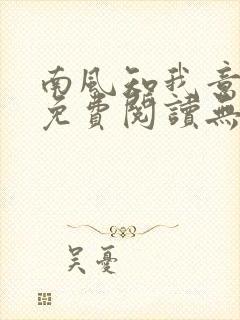 南風知我意
免費閱讀無
吴憂